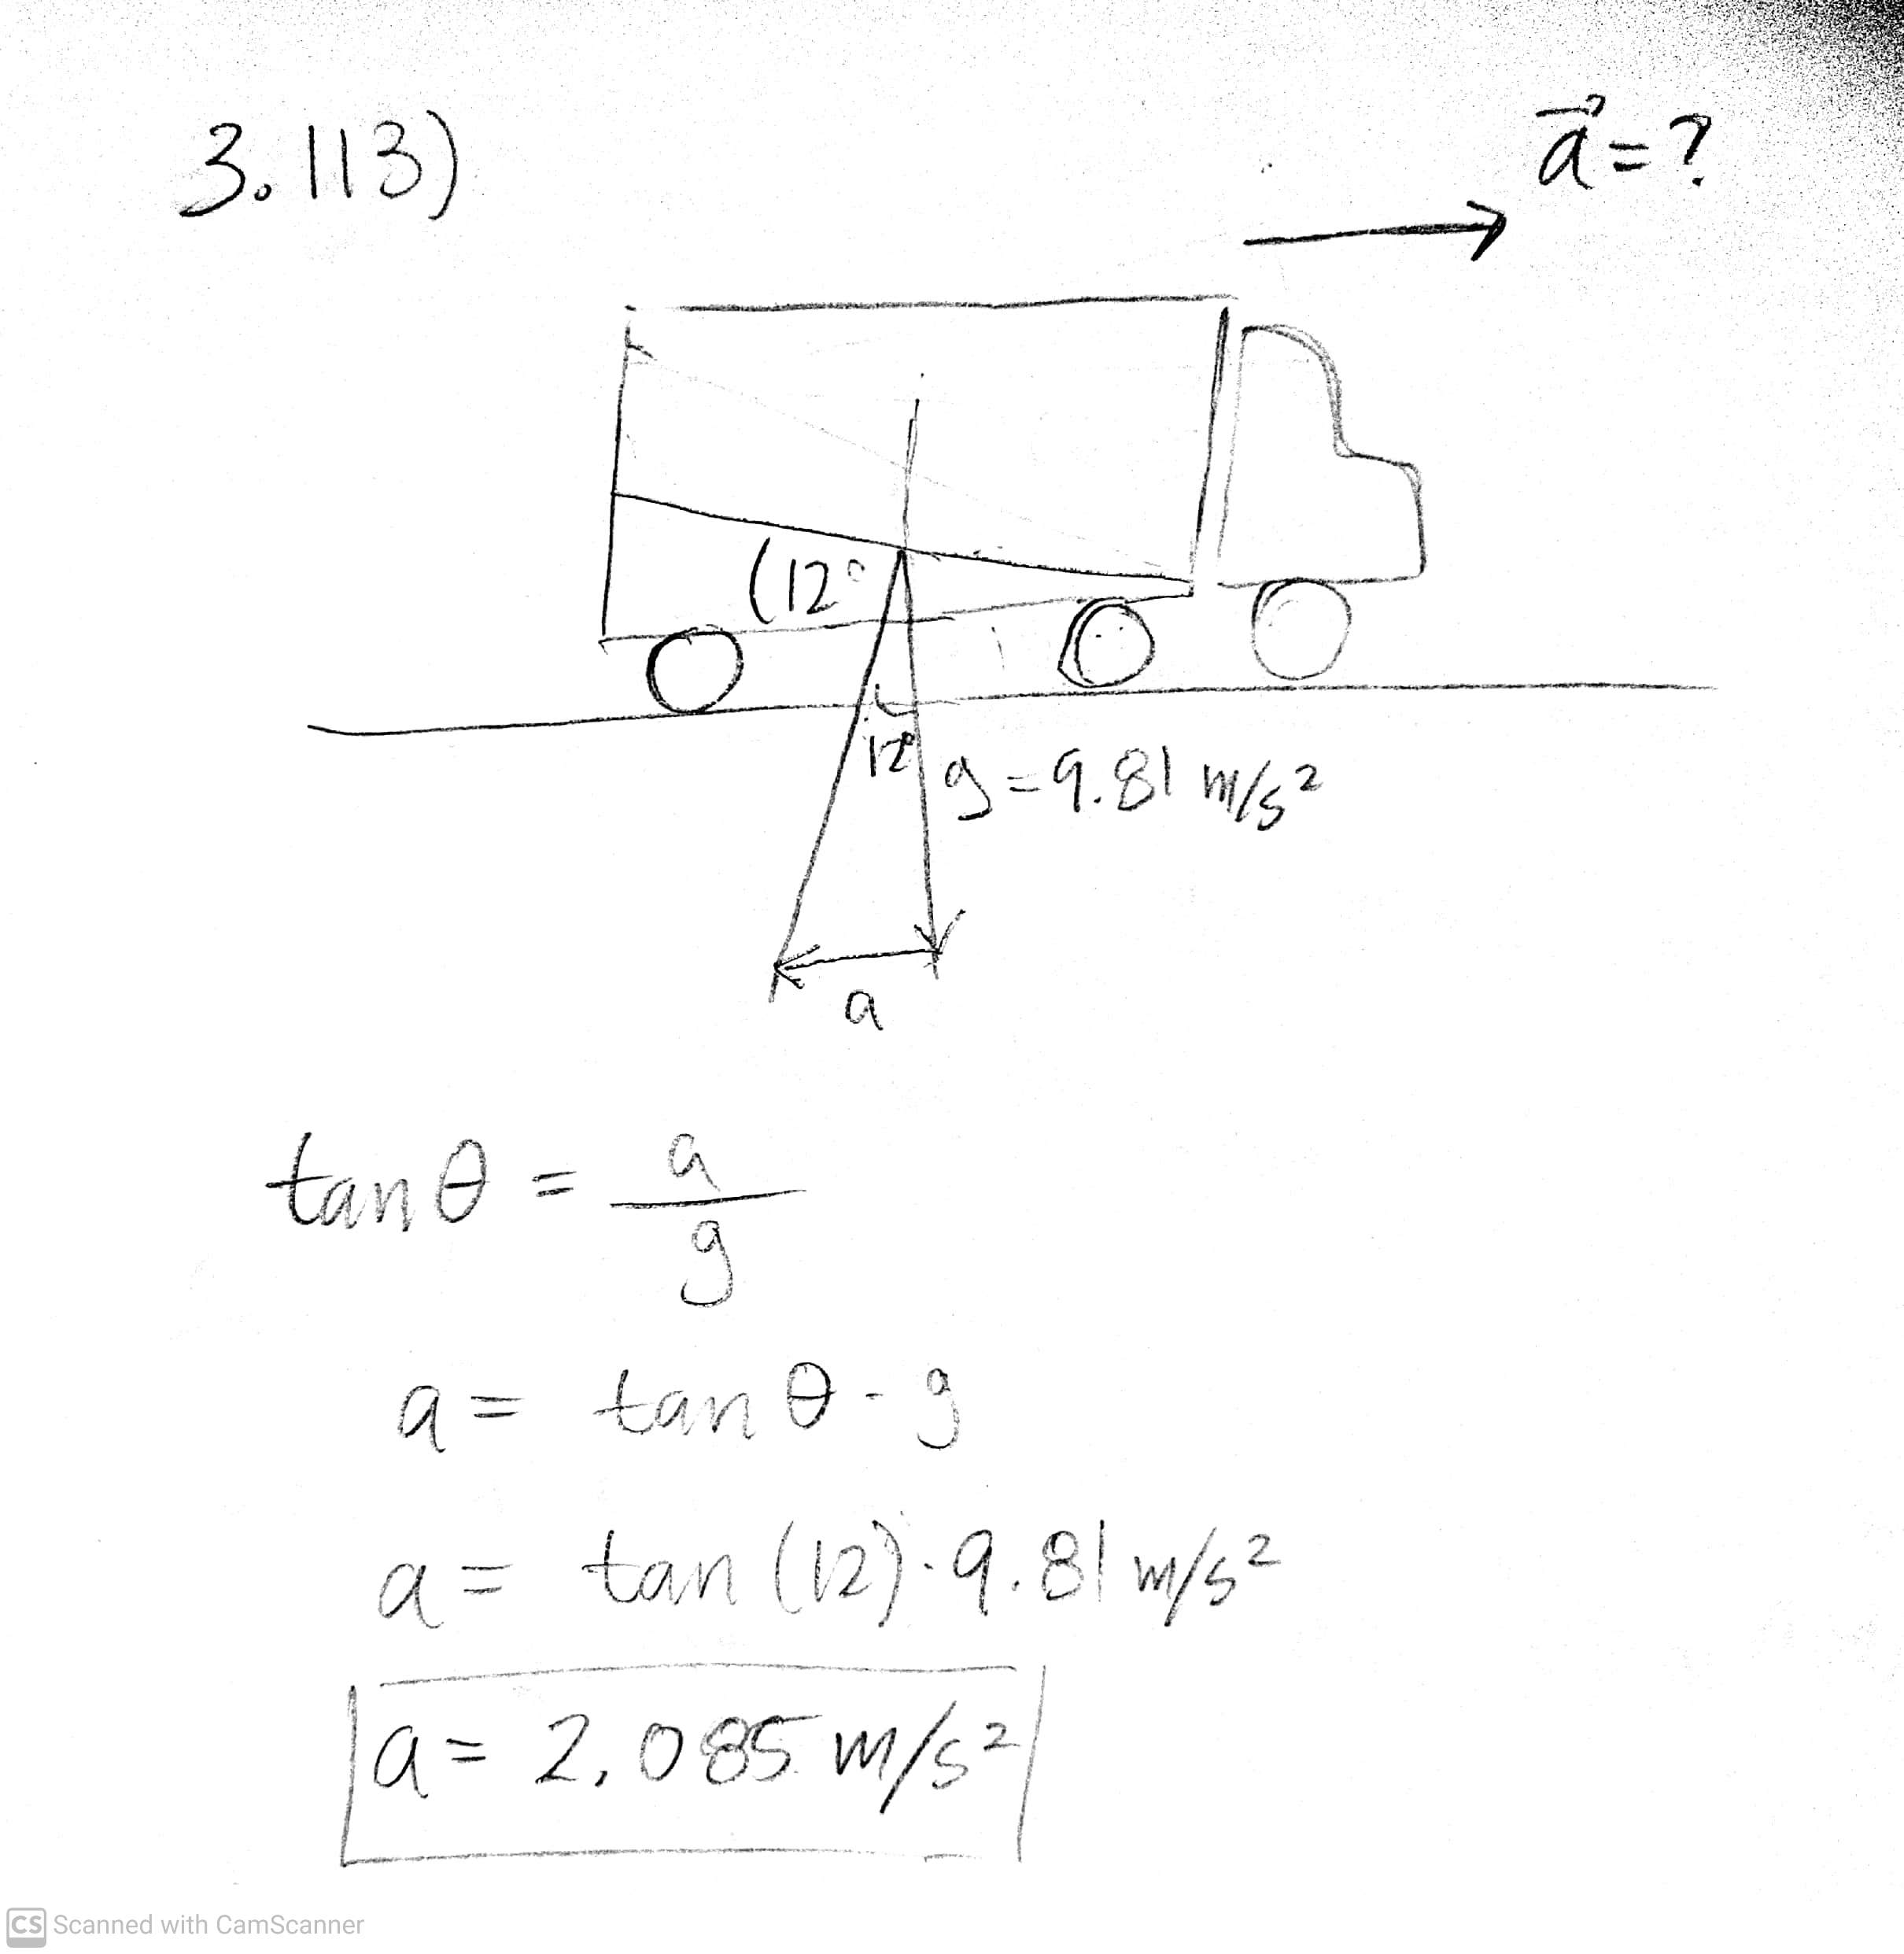 3.113)
a⃗ = ?
(12°
12°
g = 9.81 m/s²
a
tan θ = a/g
a = tan θ · g
a = tan (12) · 9.81 m/s²
a = 2.085 m/s²
CS Scanned with CamScanner